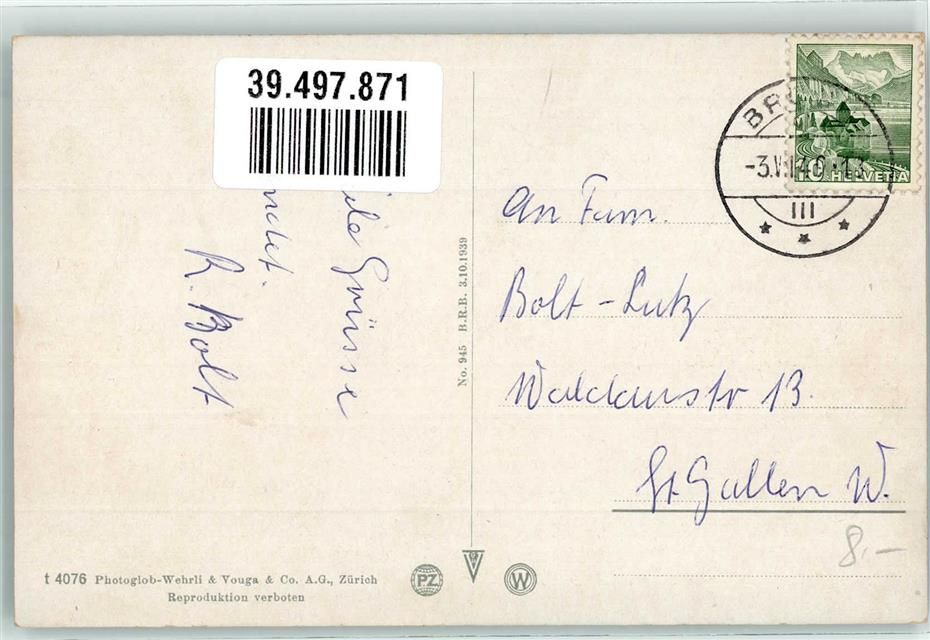 39.497.871
Grüsse
R. Bolt
No. 945 B.R.B. 3.10.1939
10 HELVETIA
III
An Fam.
Bolt-Lutz
13.
St. Gallen W.
8.-
t 4076 Photoglob-Wehrli & Vouga & Co. A.G., Zürich
Reproduktion verboten
PZ
W